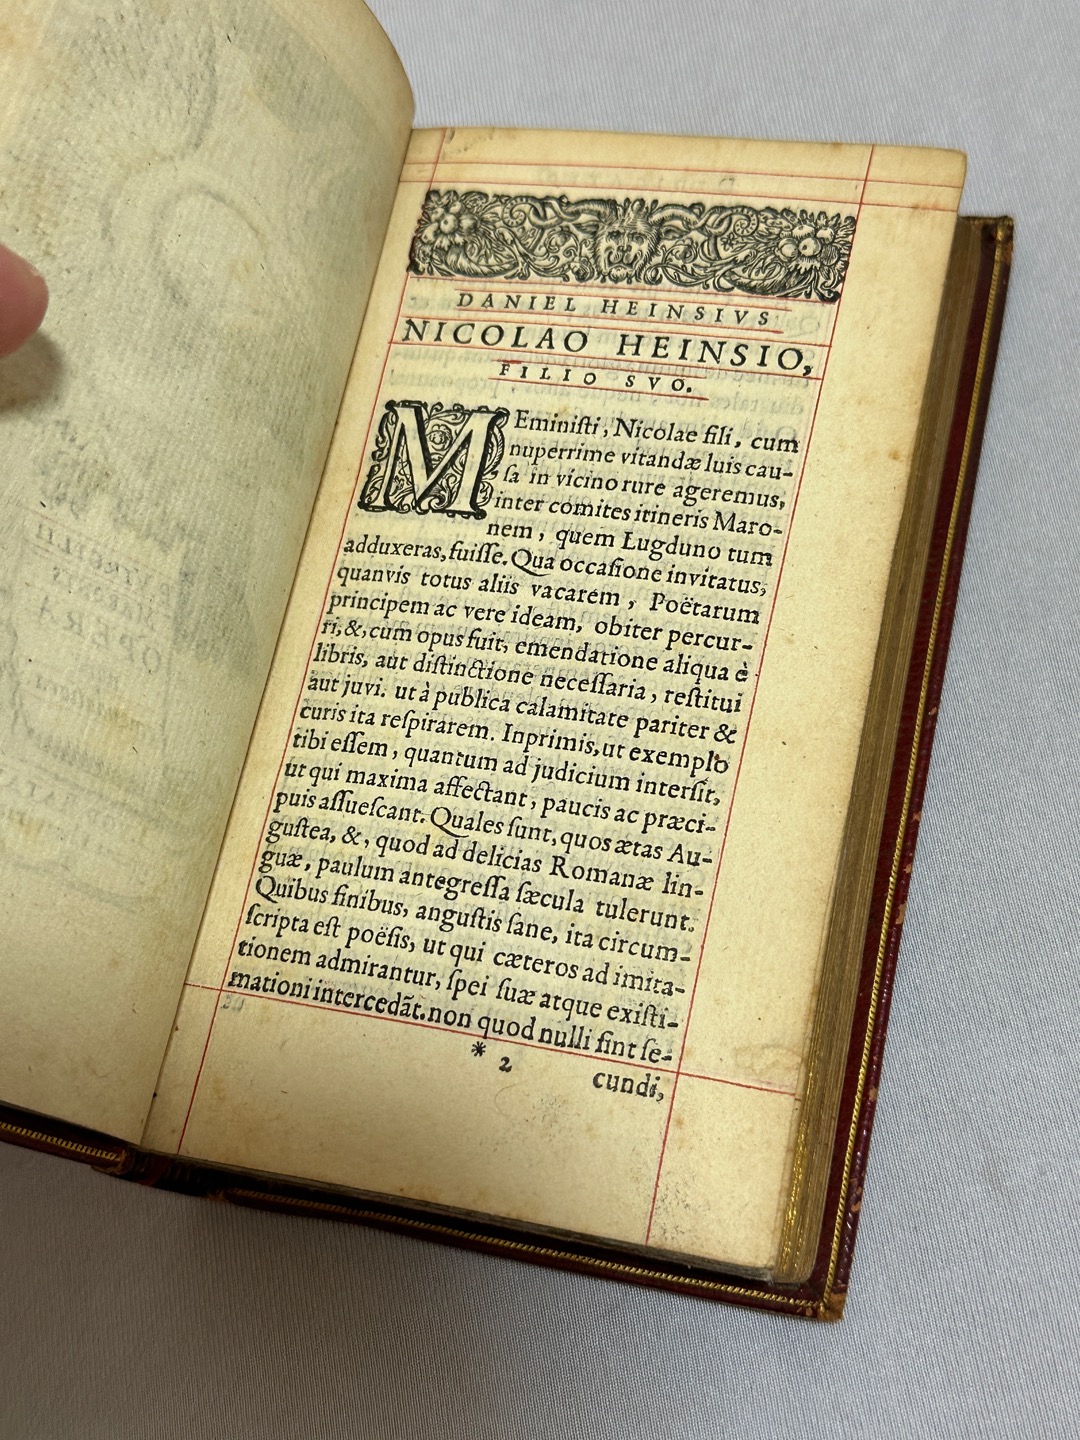 DANIEL HEINSIVS
NICOLAO HEINSIO,
FILIO SVO.
MEminiſti, Nicolae fili, cum
nuperrime vitandæ luis cau-
ſa in vicino rure ageremus,
inter comites itineris Maro-
nem, quem Lugduno tum
adduxeras, fuiſſe. Qua occaſione invitatus,
quanvis totus aliis vacarem, Poëtarum
principem ac vere ideam, obiter percur-
ri, &, cum opus fuit, emendatione aliqua è
libris, aut diſtinctione neceſſaria, reſtitui
aut juvi. ut à publica calamitate pariter &
curis ita reſpirarem. Inprimis, ut exemplo
tibi eſſem, quantum ad judicium interſit,
ut qui maxima affectant, paucis ac præci-
puis aſſueſcant. Quales ſunt, quos ætas Au-
guſtea, &, quod ad delicias Romanæ lin-
guæ, paulum antegreſſa ſæcula tulerunt.
Quibus finibus, anguſtis ſane, ita circum-
ſcripta eſt poëſis, ut qui cæteros ad imita-
tionem admirantur, ſpei ſuæ atque exiſti-
mationi intercedãt. non quod nulli ſint ſe-
* 2
cundi,